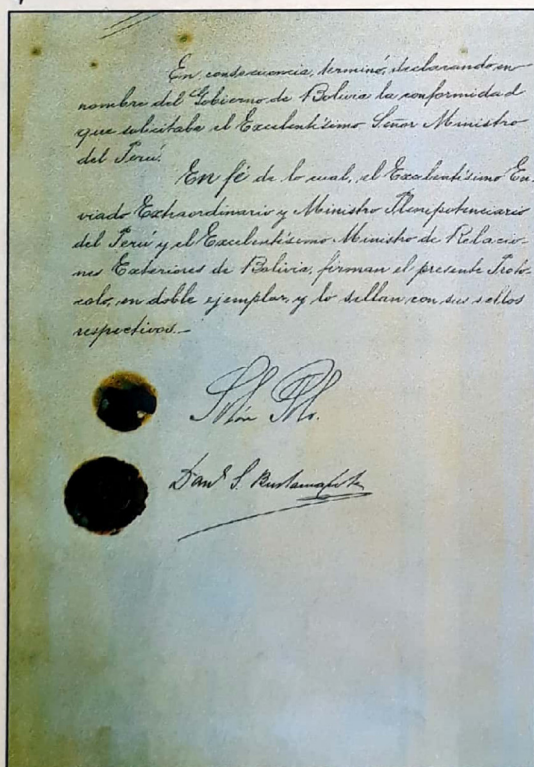 En consecuencia, terminó, declarando en
nombre del Gobierno de Bolivia la conformidad
que solicitaba el Excelentísimo Señor Ministro
del Perú.
En fé de lo cual, el Excelentísimo En-
viado Extraordinario y Ministro Plenipotenciario
del Perú y el Excelentísimo Ministro de Relacio-
nes Exteriores de Bolivia, firman el presente Proto-
colo, en doble ejemplar, y lo sellan con sus sellos
respectivos.—
Solón Polo.
Danl S. Bustamante